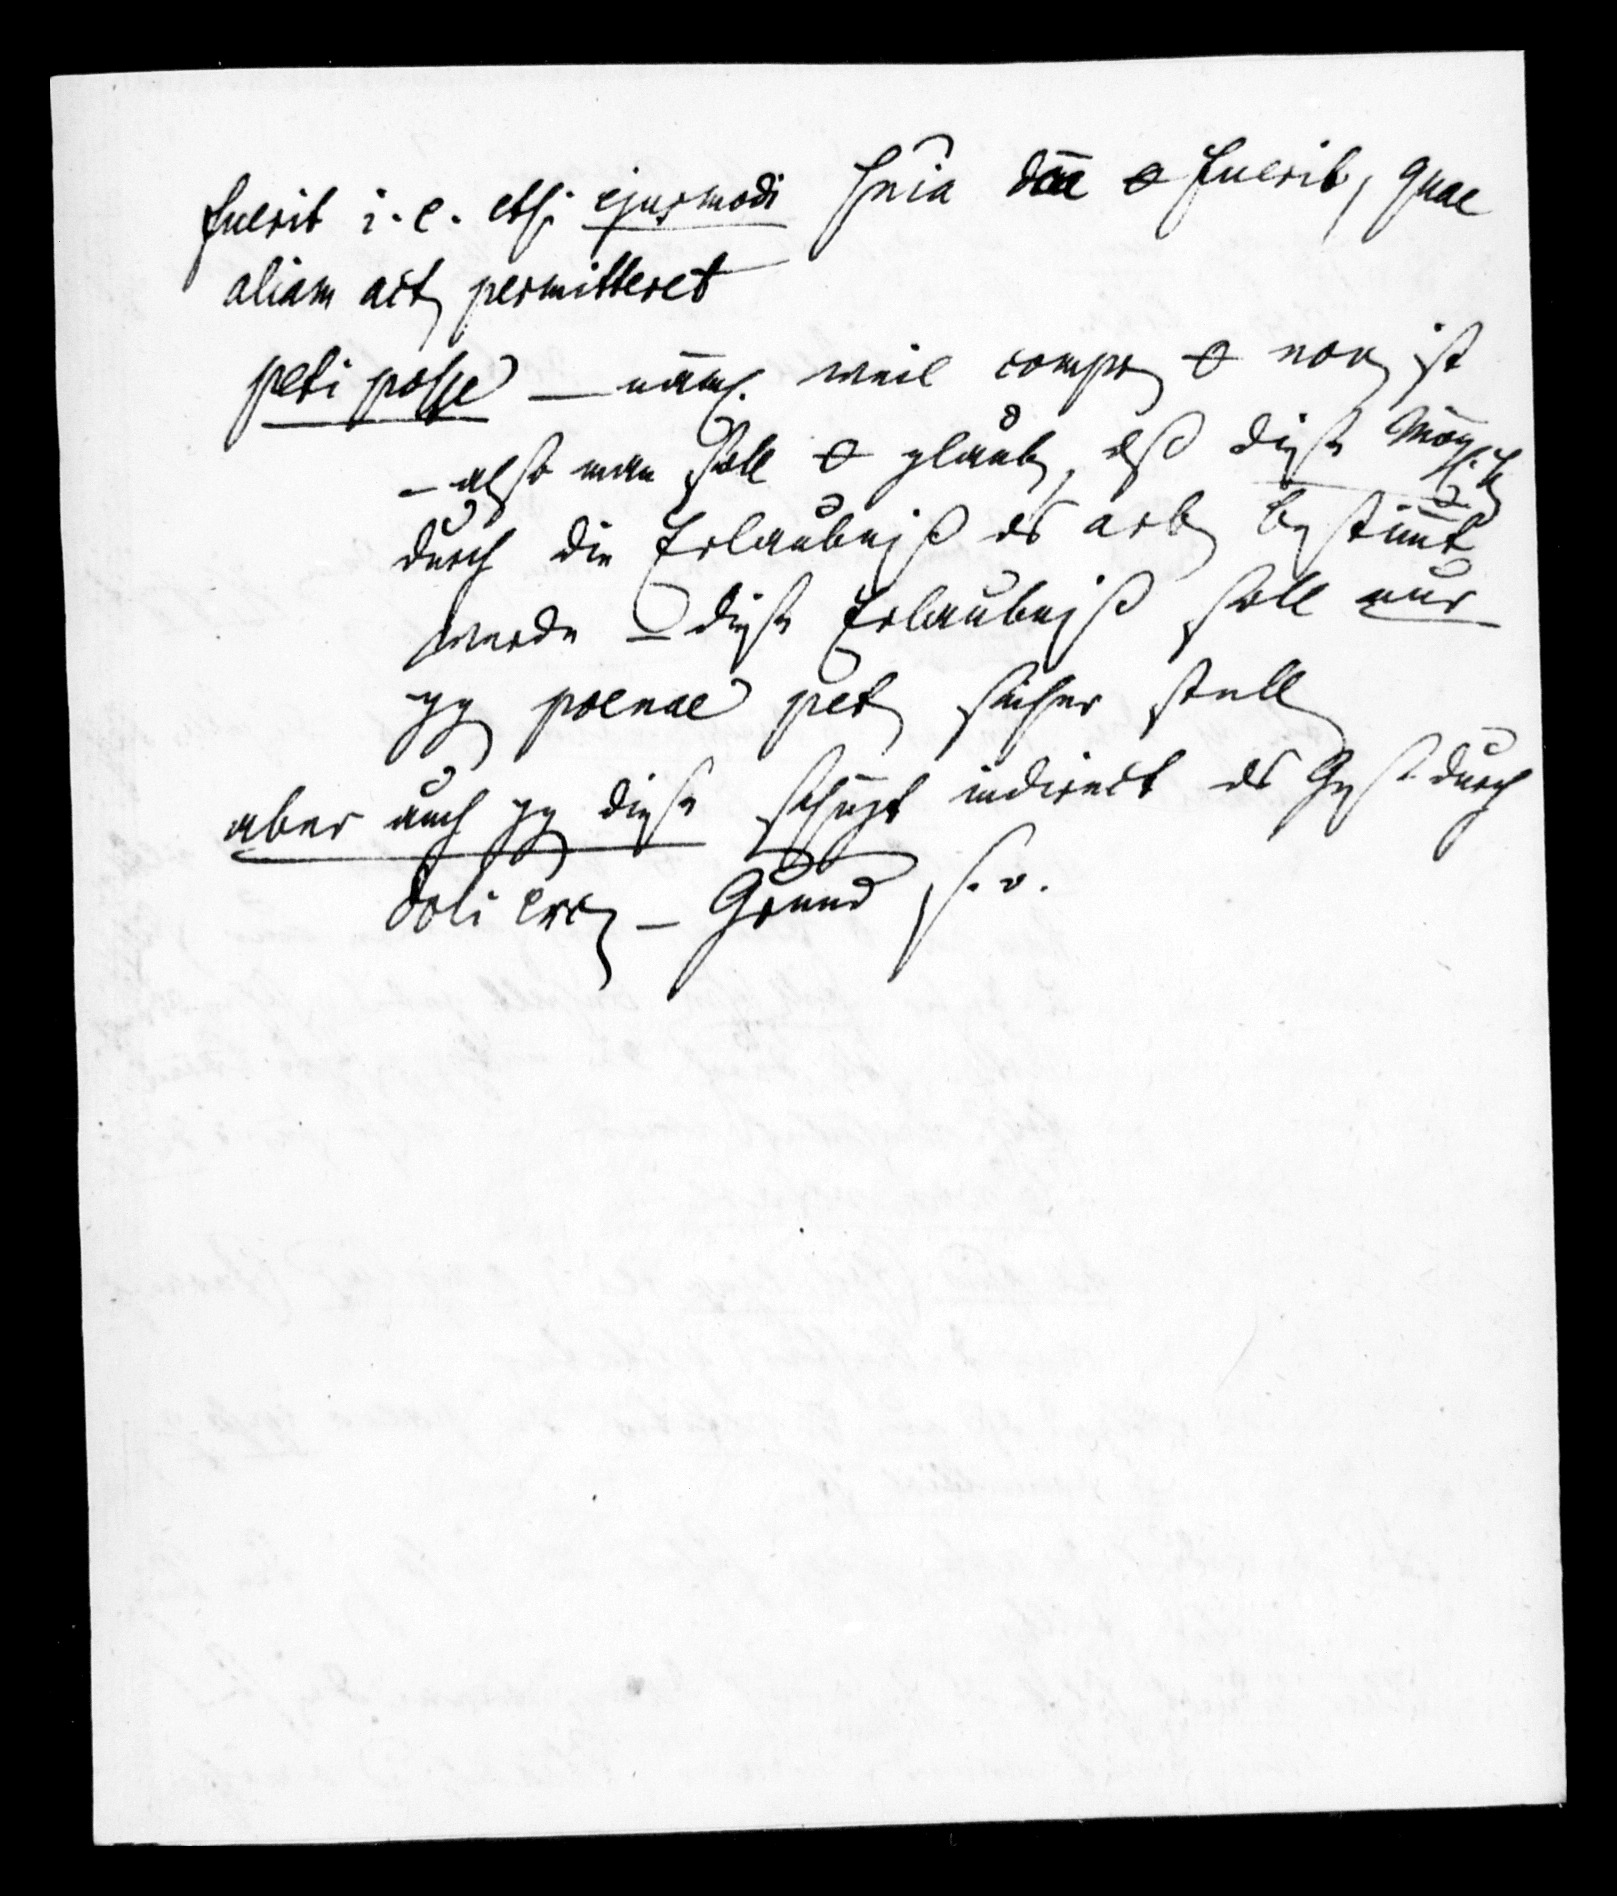 fuerit i. e. etsi ejusmodi snia data o fuerit, quae
aliam act permitteret
peti posse – näml. weil comprom o non ist
– also man soll o glaub, dß diese Mögl.k
durch die Erlaubniß ds arb bestimt
werde – diese Erlaubniß soll nur
gg poenae pet sicher stell
aber auch gg diese schüzt indirect ds Ges durch
doli exc – Grund s. o.